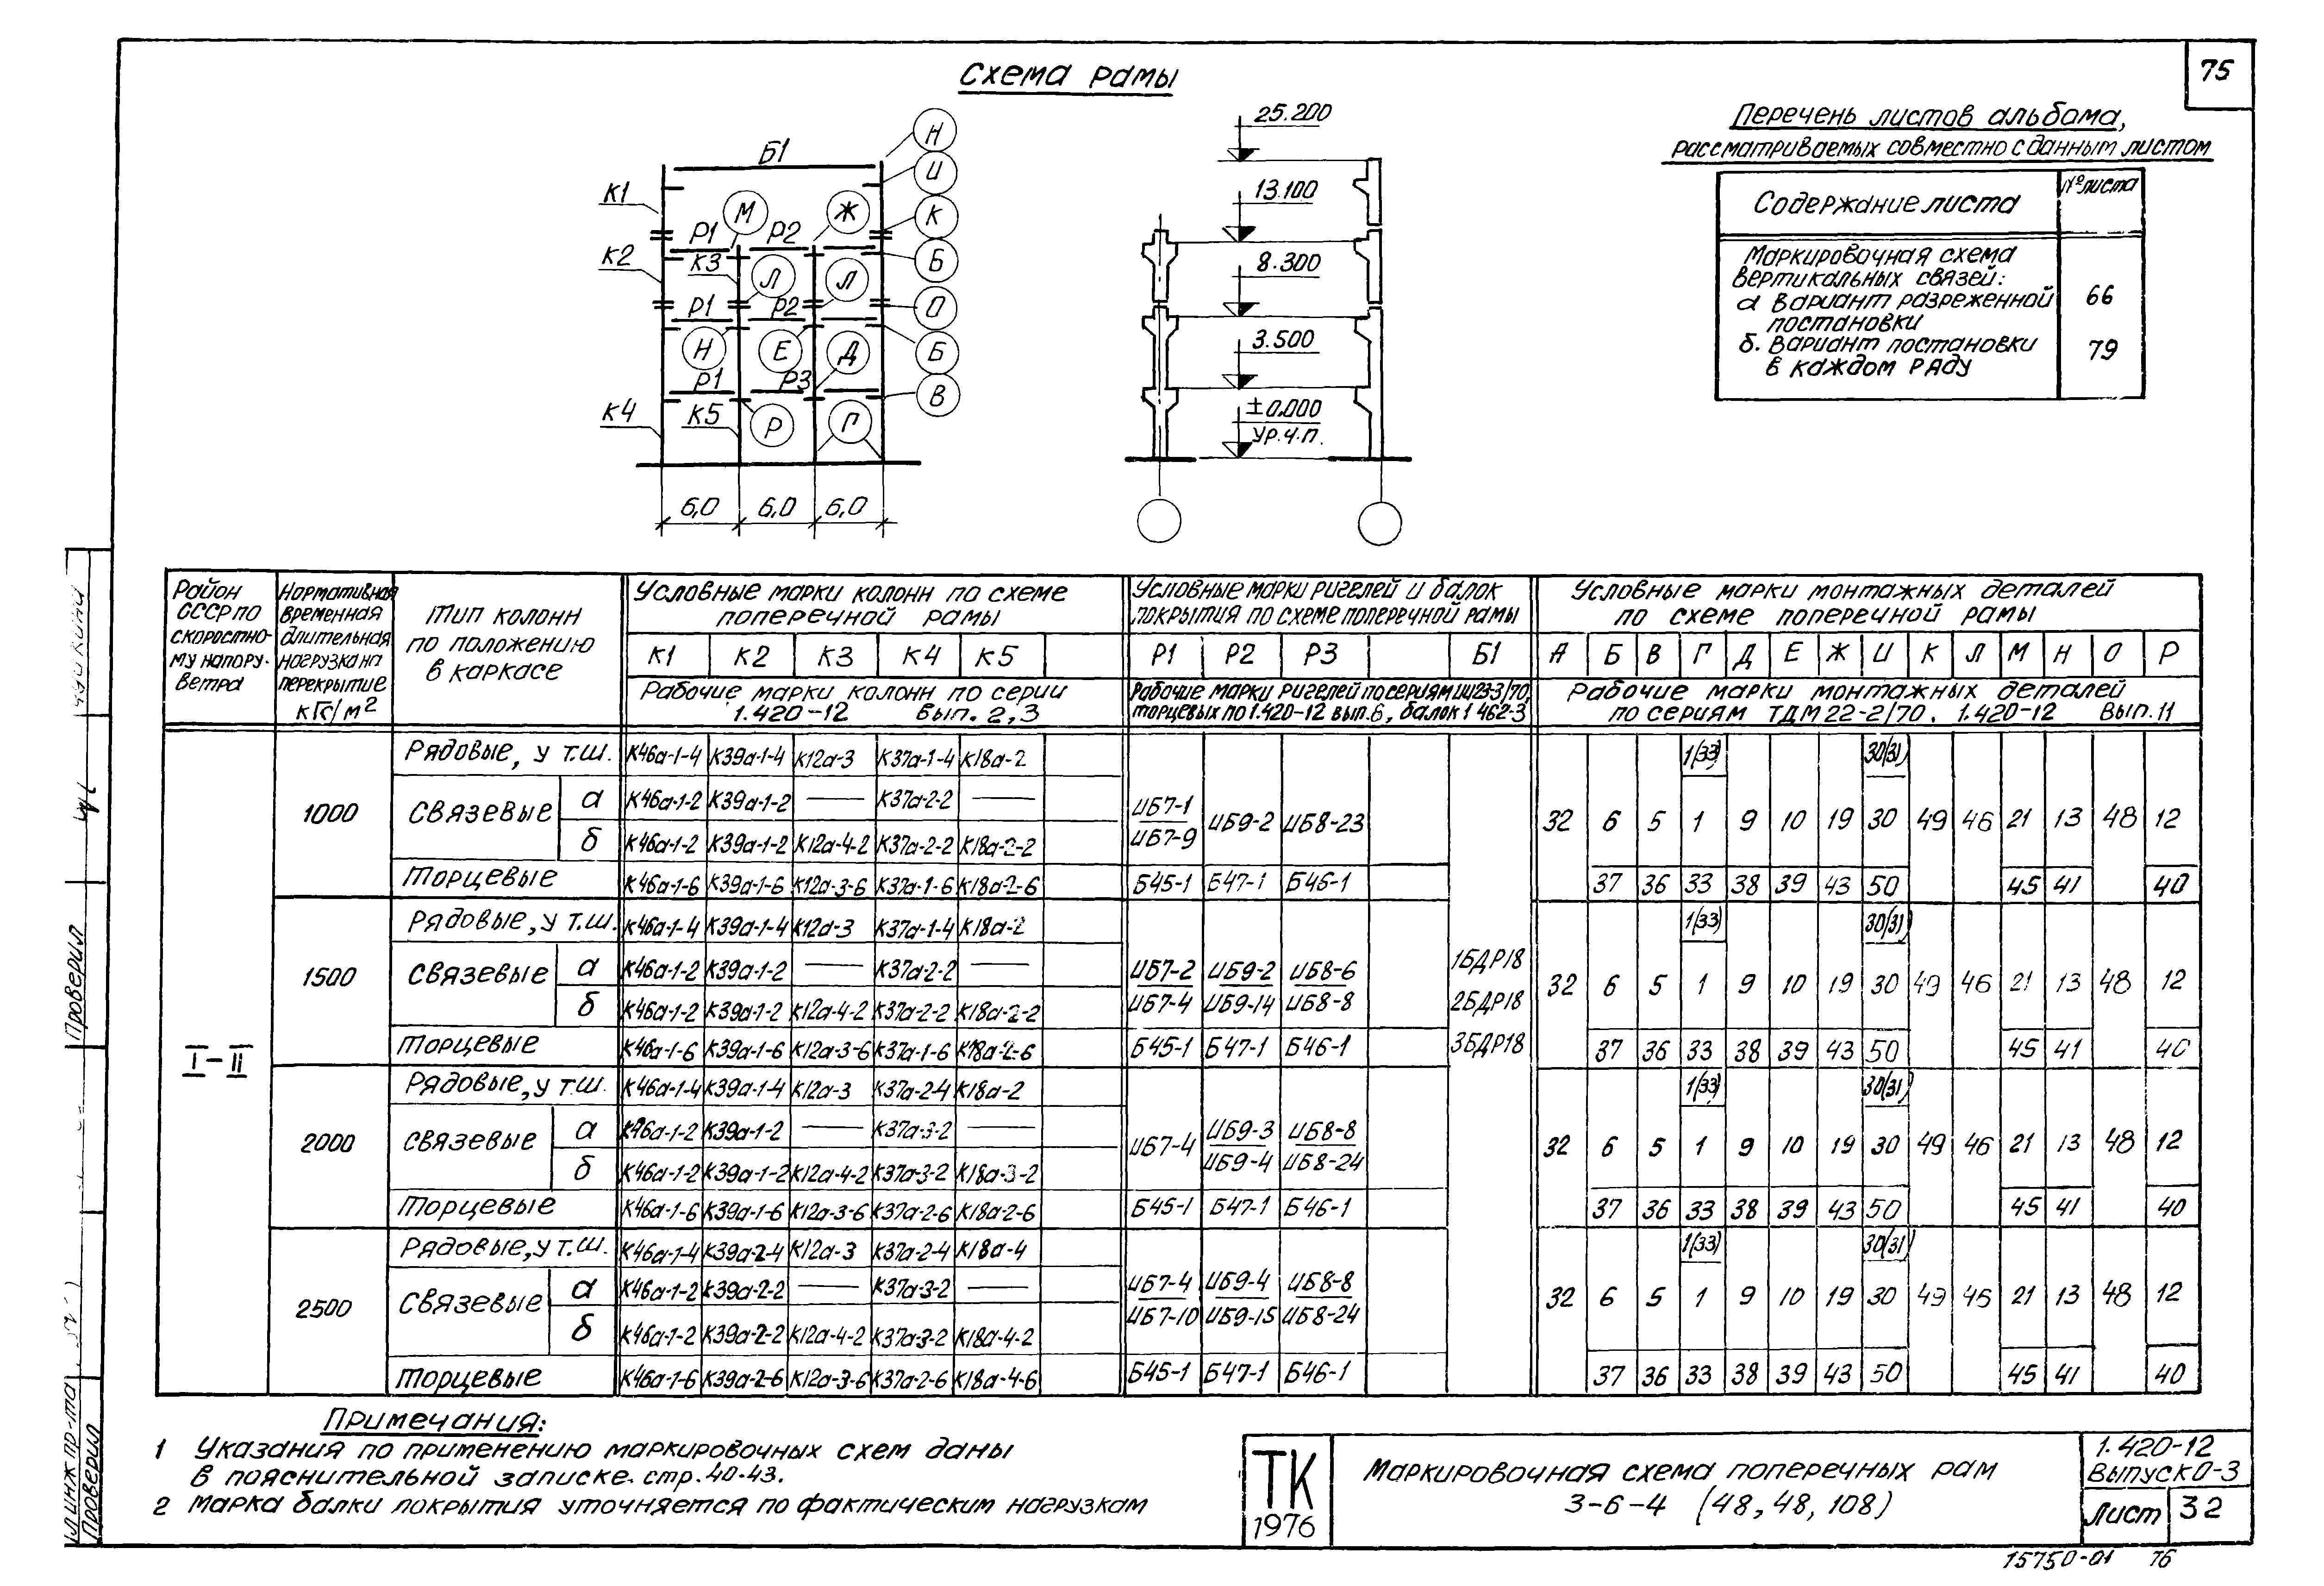 75
Схема рамы
Б1
К1
К2
К3
К4
К5
Р1
Р2
Р1
Р2
Р1
Р3
Н
И
К
Б
О
Б
В
М
Ж
Л
Л
Н
Е
Д
Р
Г
6,0
6,0
6,0
25.200
13.100
8.300
3.500
±0.000
Ур.ч.п.
Перечень листов альбома,
рассматриваемых совместно с данным листом
Содержание листа
№ листа
Маркировочная схема
вертикальных связей:
а вариант разреженной
постановки
66
б. вариант постановки
в каждом ряду
79
Район СССР по скоростному напору ветра
Нормативная временная длительная нагрузка на перекрытие кГс/м2
Тип колонн по положению в каркасе
Условные марки колонн по схеме поперечной рамы
Условные марки ригелей и балок покрытия по схеме поперечной рамы
Условные марки монтажных деталей по схеме поперечной рамы
К1 К2 К3 К4 К5
Р1 Р2 Р3 Б1
А Б В Г Д Е Ж И К Л М Н О Р
Рабочие марки колонн по серии 1.420-12 вып. 2,3
Рабочие марки ригелей по сериям ИИ23-3/70, торцевых по 1.420-12 вып.6, балок 1 462-3
Рабочие марки монтажных деталей по сериям ТДМ 22-2/70. 1.420-12 Вып. 11
I-II
1000
Рядовые, у т.ш. К46а-1-4 К39а-1-4 К12а-3 К37а-1-4 К18а-2
1(33) 30(31)
Связевые
а К46а-1-2 К39а-1-2 — К37а-2-2 —
ИБ7-1
ИБ7-9
ИБ9-2 ИБ8-23
32 6 5 1 9 10 19 30 49 46 21 13 48 12
б К46а-1-2 К39а-1-2 К12а-4-2 К37а-2-2 К18а-2-2
Торцевые К46а-1-6 К39а-1-6 К12а-3-6 К37а-1-6 К18а-2-6 Б45-1 Б47-1 Б46-1
37 36 33 38 39 43 50 45 41 40
1500
Рядовые, у т.ш. К46а-1-4 К39а-1-4 К12а-3 К37а-1-4 К18а-2
1(33) 30(31)
Связевые
а К46а-1-2 К39а-1-2 — К37а-2-2 —
ИБ7-2 ИБ9-2 ИБ8-6
ИБ7-4 ИБ9-14 ИБ8-8
1БДР18
2БДР18
3БДР18
32 6 5 1 9 10 19 30 49 46 21 13 48 12
б К46а-1-2 К39а-1-2 К12а-4-2 К37а-2-2 К18а-2-2
Торцевые К46а-1-6 К39а-1-6 К12а-3-6 К37а-1-6 К18а-2-6 Б45-1 Б47-1 Б46-1
37 36 33 38 39 43 50 45 41 40
2000
Рядовые, у т.ш. К46а-1-4 К39а-1-4 К12а-3 К37а-2-4 К18а-2
1(33) 30(31)
Связевые
а К46а-1-2 К39а-1-2 — К37а-3-2 —
ИБ7-4
ИБ9-3 ИБ8-8
ИБ9-4 ИБ8-24
32 6 5 1 9 10 19 30 49 46 21 13 48 12
б К46а-1-2 К39а-1-2 К12а-4-2 К37а-3-2 К18а-3-2
Торцевые К46а-1-6 К39а-1-6 К12а-3-6 К37а-2-6 К18а-2-6 Б45-1 Б47-1 Б46-1
37 36 33 38 39 43 50 45 41 40
2500
Рядовые, у т.ш. К46а-1-4 К39а-2-4 К12а-3 К37а-2-4 К18а-4
1(33) 30(31)
Связевые
а К46а-1-2 К39а-2-2 — К37а-3-2 —
ИБ7-4 ИБ9-4 ИБ8-8
ИБ7-10 ИБ9-15 ИБ8-24
32 6 5 1 9 10 19 30 49 46 21 13 48 12
б К46а-1-2 К39а-2-2 К12а-4-2 К37а-3-2 К18а-4-2
Торцевые К46а-1-6 К39а-2-6 К12а-3-6 К37а-2-6 К18а-4-6 Б45-1 Б47-1 Б46-1
37 36 33 38 39 43 50 45 41 40
Примечания:
1 Указания по применению маркировочных схем даны
в пояснительной записке. стр. 40-43.
2 Марка балки покрытия уточняется по фактическим нагрузкам
ТК
1976
Маркировочная схема поперечных рам
3-6-4 (48, 48, 108)
1.420-12
Выпуск 0-3
Лист 32
15750-01 76
Проверил
Проверил